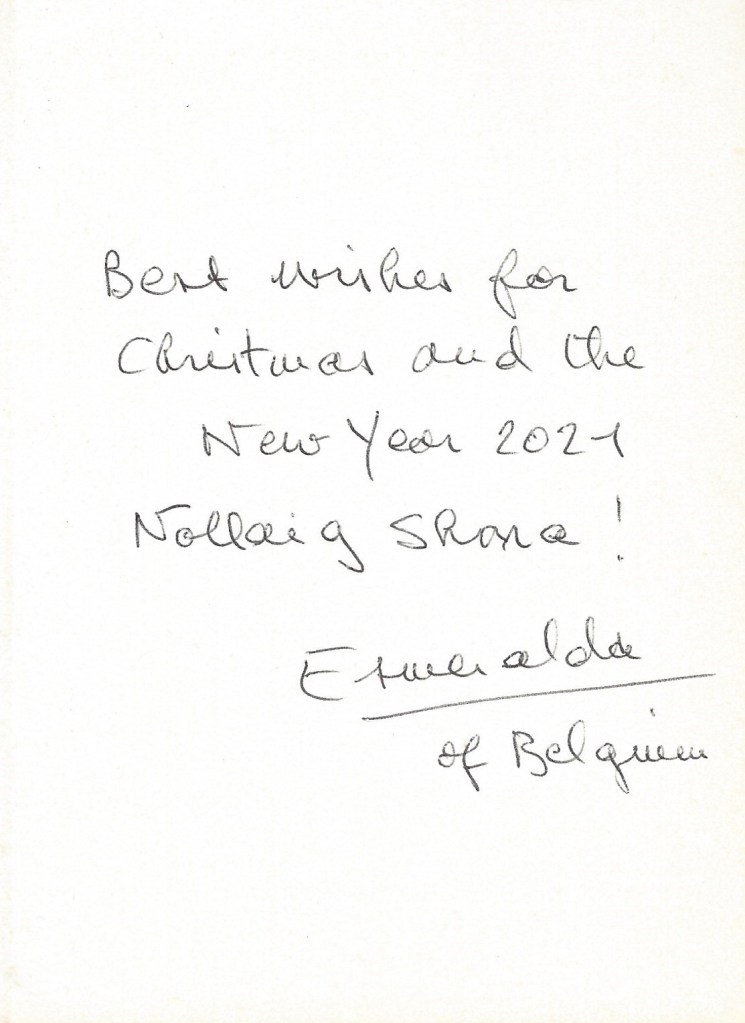 Best wishes for
Christmas and the
New Year 2021
Nollaig Shona!
Esmeralda
of Belgium